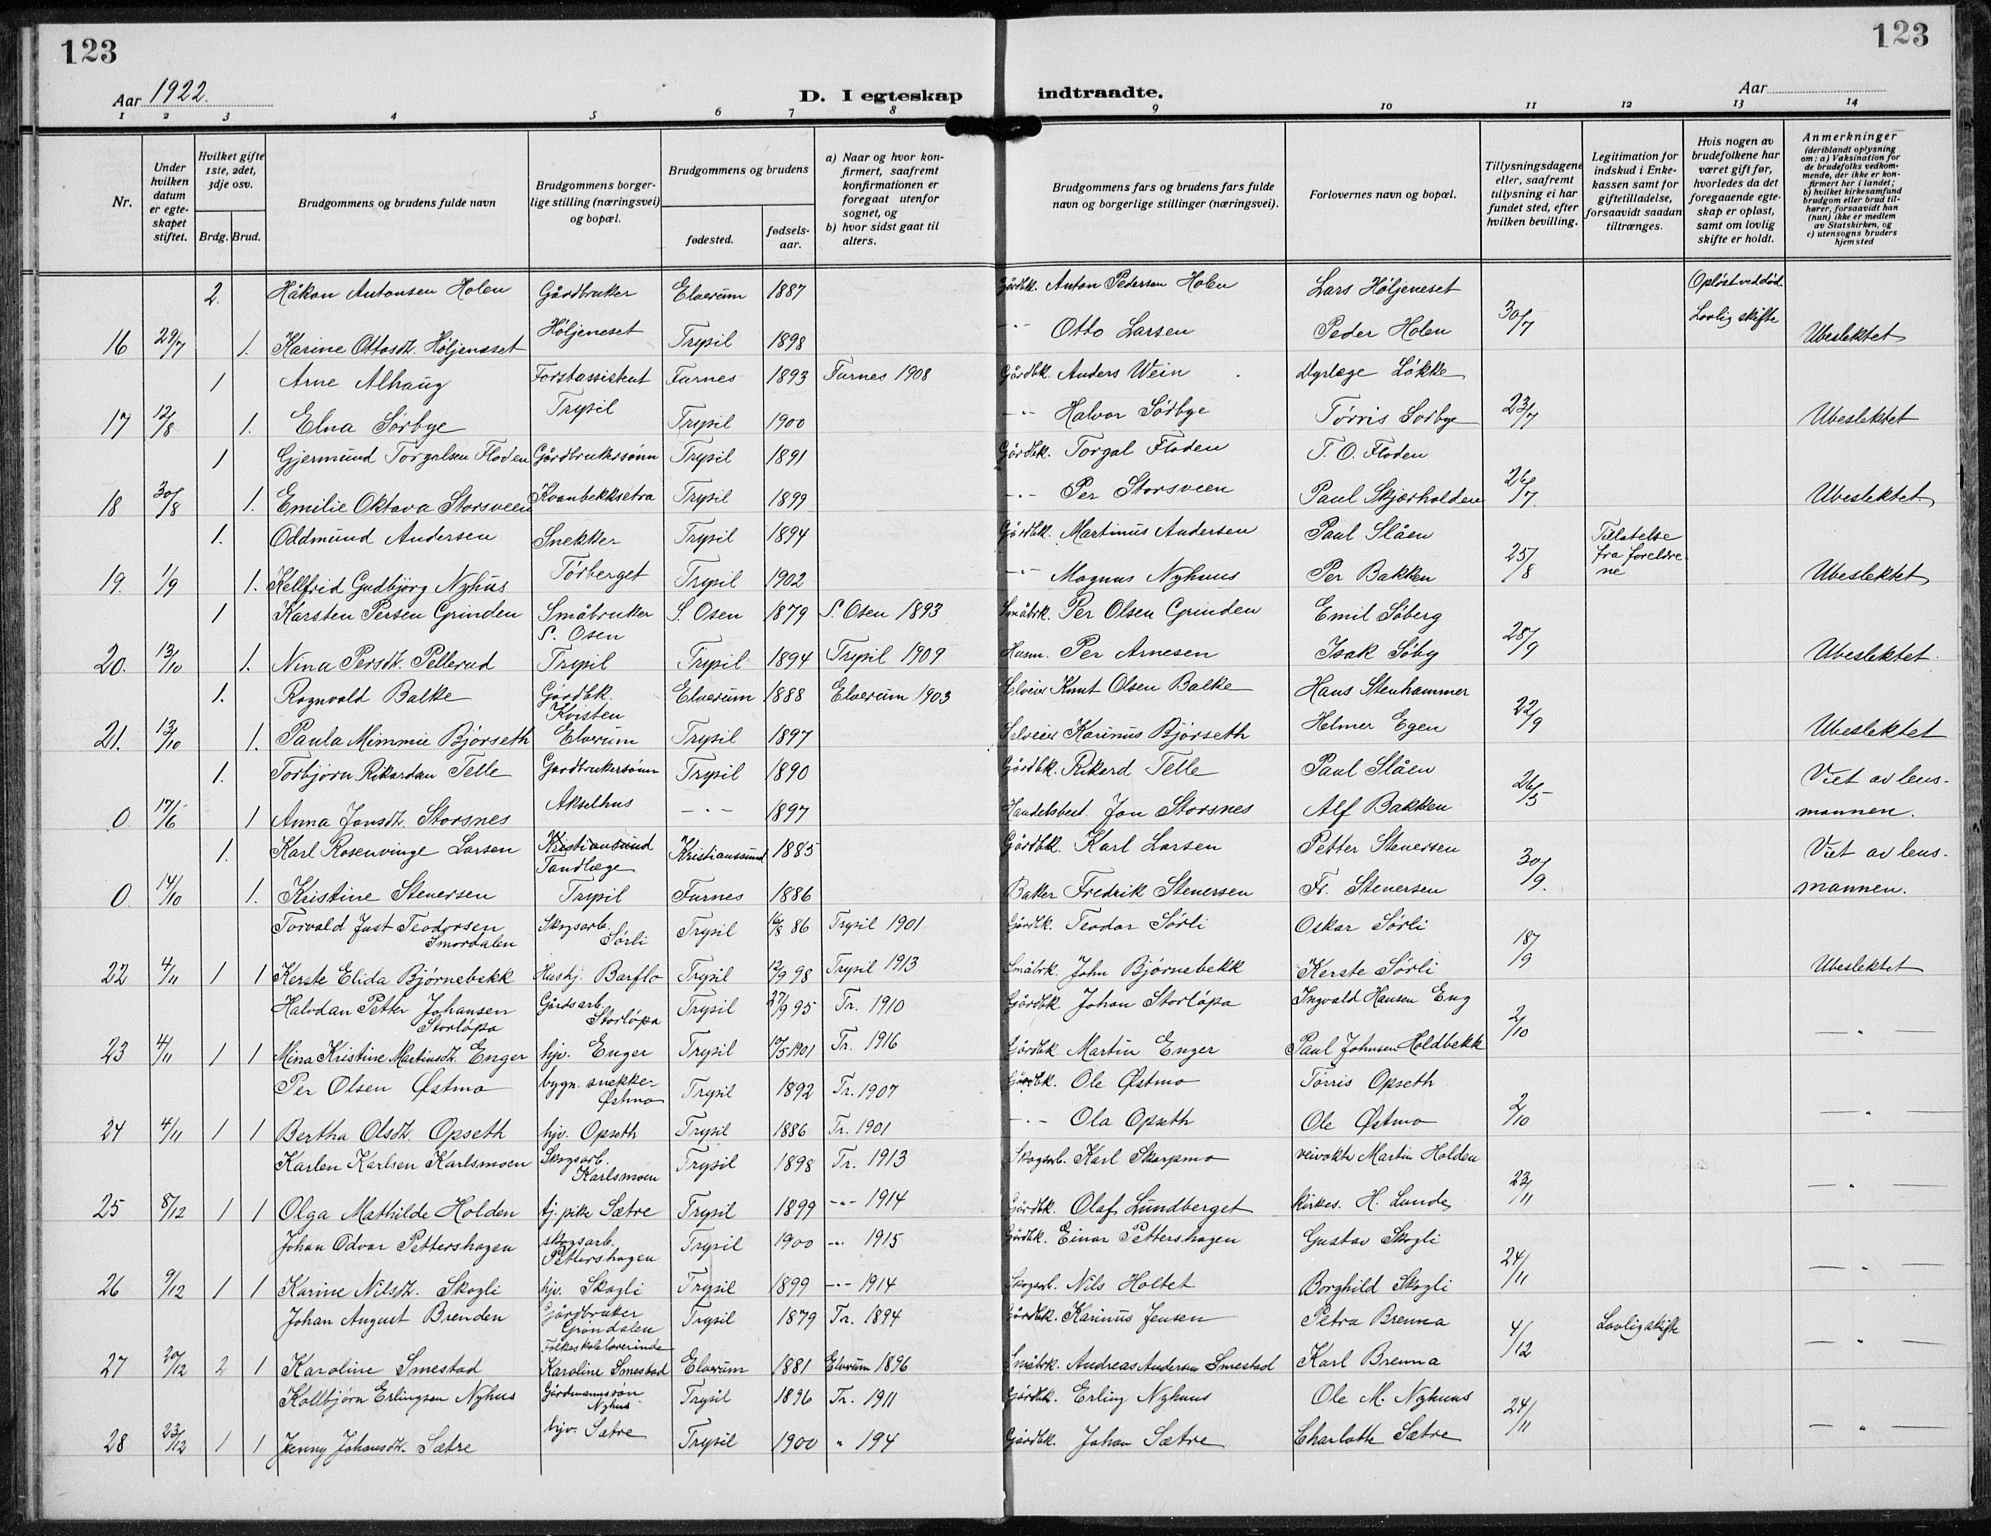 123
123
Aar 1922.
D. I egteskap indtraadte.
Aar
1 2 3 4 5 6 7 8 9 10 11 12 13 14
Nr.
Under hvilken datum er egteskapet stiftet.
Hvilket gifte 1ste, 2det, 3dje osv.
Brdg. Brud.
Brudgommens og brudens fulde navn
Brudgommens borgerlige stilling (næringsvei) og bopæl.
Brudgommens og brudens
fødested.
fødselsaar.
a) Naar og hvor konfirmert, saafremt konfirmationen er foregaat utenfor sognet, og
b) hvor sidst gaat til alters.
Brudgommens fars og brudens fars fulde navn og borgerlige stillinger (næringsvei).
Forlovernes navn og bopæl.
Tillysningsdagene eller, saafremt tillysning ei har fundet sted, efter hvilken bevilling.
Legitimation for indskud i Enkekassen samt for giftetilladelse, forsaavidt saadan tiltrænges.
Hvis nogen av brudefolkene har været gift før, hvorledes da det foregaaende egteskap er opløst, samt om lovlig skifte er holdt.
Anmerkninger (deriblandt oplysning om: a) Vaksination for de brudefolks vedkommende, der ikke er konfirmert her i landet; b) hvilket kirkesamfund brudgom eller brud tilhører, forsaavidt han (hun) ikke er medlem av Statskirken, og c) utensogns bruders hjemsted
2. Håkon Antonsen Holen Gårdbruker Elverum 1887 Gårdbk. Anton Pedersen Holen Lars Høljeneset Opløst ved død. Lovlig skifte
16 29/7 1. Karine Ottosdt. Høljeneset Høljeneset Trysil 1898 -"- Otto Larsen Peder Holen 30/7 Ubeslektet
1 Arne Alhaug Forstassistent Furnes 1893 Furnes 1908 Gårdbk. Anders Wein Dyrlæge Løkke
17 12/8 1. Elna Sørbye Trysil Trysil 1900 -"- Halvor Sørbye Tørris Sorbye 23/7 Ubeslektet
1 Gjermund Torgalsen Floden Gårdbrukersønn Trysil 1891 Gårdbk. Torgal Floden T. O. Floden
18 30/8 1. Emilie Oktava Storsveen Kvanbekksetra Trysil 1899 -"- Per Storsveen Paul Skjærholden 26/7. Ubeslektet.
1. Oddmund Andersen Snekker Trysil 1894 Gårdbk. Martinus Andersen Paul Slåen Tillatelse fra foreldrene
19. 1/9 1. Hellfrid Gudbjörg Nyhus Tørberget Trysil 1902 -"- Magnus Nyhuus Per Bakken 25/8 Ubeslektet
1 Karsten Persen Grinden Småbruker S. Osen S. Osen 1879 S. Osen 1893 Småbrk. Per Olsen Grinden Emil Søberg
20. 13/10 1. Nina Persdt. Pellerud Trysil Trysil 1894 Trysil 1909 Husm. Per Arnesen Isak Søby 28/9 Ubeslektet.
1. Rognvald Balke Gårdbk. Kvisten Elverum 1888 Elverum 1903 Selveier Knut Olsen Balke Hans Stenhammer
21. 13/10 1. Paula Mimmie Bjørseth Elverum Trysil 1897 Selveier Karinus Bjørseth Helmer Egen 22/9 Ubeslektet
1. Torbjørn Rikardsen Telle Gardbrukersønn Trysil 1890 Gårdbk. Rikard Telle Paul Slåen Viet av lens-
0. 17/6 1 Anna Jonsdt. Storsnes Akselhus -"- 1897 Handelsbest. Jon Storsnes Alf Bakken 26/5 mannen.
1. Karl Rosenvinge Larsen Kristiansund Tandlæge Kristianssund 1885 Gårdbk. Karl Larsen Petter Stenersen Viet av lens-
0. 14/10 1. Kristine Stenersen Trysil Furnes 1886 Baker Fredrik Stenersen Fr. Stenersen 30/9. mannen.
Torvald Just Teodorsen Smordalen Skogsarb. Sørli Trysil 16/8 86 Trysil 1901 Gårdbk. Teodor Sørli Oskar Sørli
22 4/11 1 1 Kerste Elida Bjørnebekk Hushj. Barflo Trysil 12/9 98 Trysil 1913 Småbrk. John Bjørnebekk Kerste Sørli 18/9 Ubeslektet
Halvdan Petter Johansen Storløpa Gårdsarb. Storløpa Trysil 27/9 95 Tr. 1910 Gårdbk Johan Storløpa Ingvald Hansen Eng
23 4/11 1 1 Mina Kristine Martinsdt. Enger hjv. Enger Trysil 17/5 1901 Tr. 1916 Gårdbk Martin Enger Paul Johnsen Holdbekk 2/10 — " —
Per Olsen Østmo bygn. snekker Østmo Trysil 1892 Tr. 1907 Gårdbk. Ole Østmo Tørris Opseth
24 4/11 1 1 Bertha Olsdt. Opseth hjv. Opseth Trysil 1886 Tr. 1901 -"- Ola Opseth Ole Østmo 2/10 — " —
Karlen Karlsen Karlsmoen Skogsarb. Karlsmoen Trysil 1898 Tr. 1913 Skogarb. Karl Skarpmo veivokte Martin Holden
25 8/12 1 1 Olga Mathilde Holden tj. pike Sætre Trysil 1899 -"- 1914 Gårdbk. Olaf Lundberget Kirkes. H. Lunde 23/11 — " —
Johan Odvar Pettershagen skogsarb. Pettershagen Trysil 1900 -"- 1915 Gårdbk. Einar Pettershagen Gustav Skogli
26 9/12 1 1 Karine Nilsdt. Skogli hjv. Skogli Trysil 1899 -"- 1914 Skogarb. Nils Holtet Borghild Skogli 24/11 — " —
Johan August Brenden Gårdbruker Gröndalen Trysil 1879 Tr. 1894 Gårdbk. Karinus Jensen Petra Brenna Lovlig skifte
27 20/12 2 1 Karoline Smestad Folkeskolelærerinde Karoline Smestad Elverum 1881 Elverum 1896 Småbk. Andreas Andersen Smestad Karl Brenna 4/12 — " —
Kollbjørn Erlingsen Nyhus Gårdmannssøn Nyhus Trysil 1896 Tr. 1911 Gårdbk. Erling Nyhuus Ole M. Nyhuus
28 23/12 1 1 Jenny Johansdt. Sætre hjv. Sætre Trysil 1900 " 194 Gårdbk. Johan Sætre Charlotte Sætre 24/11 — " —